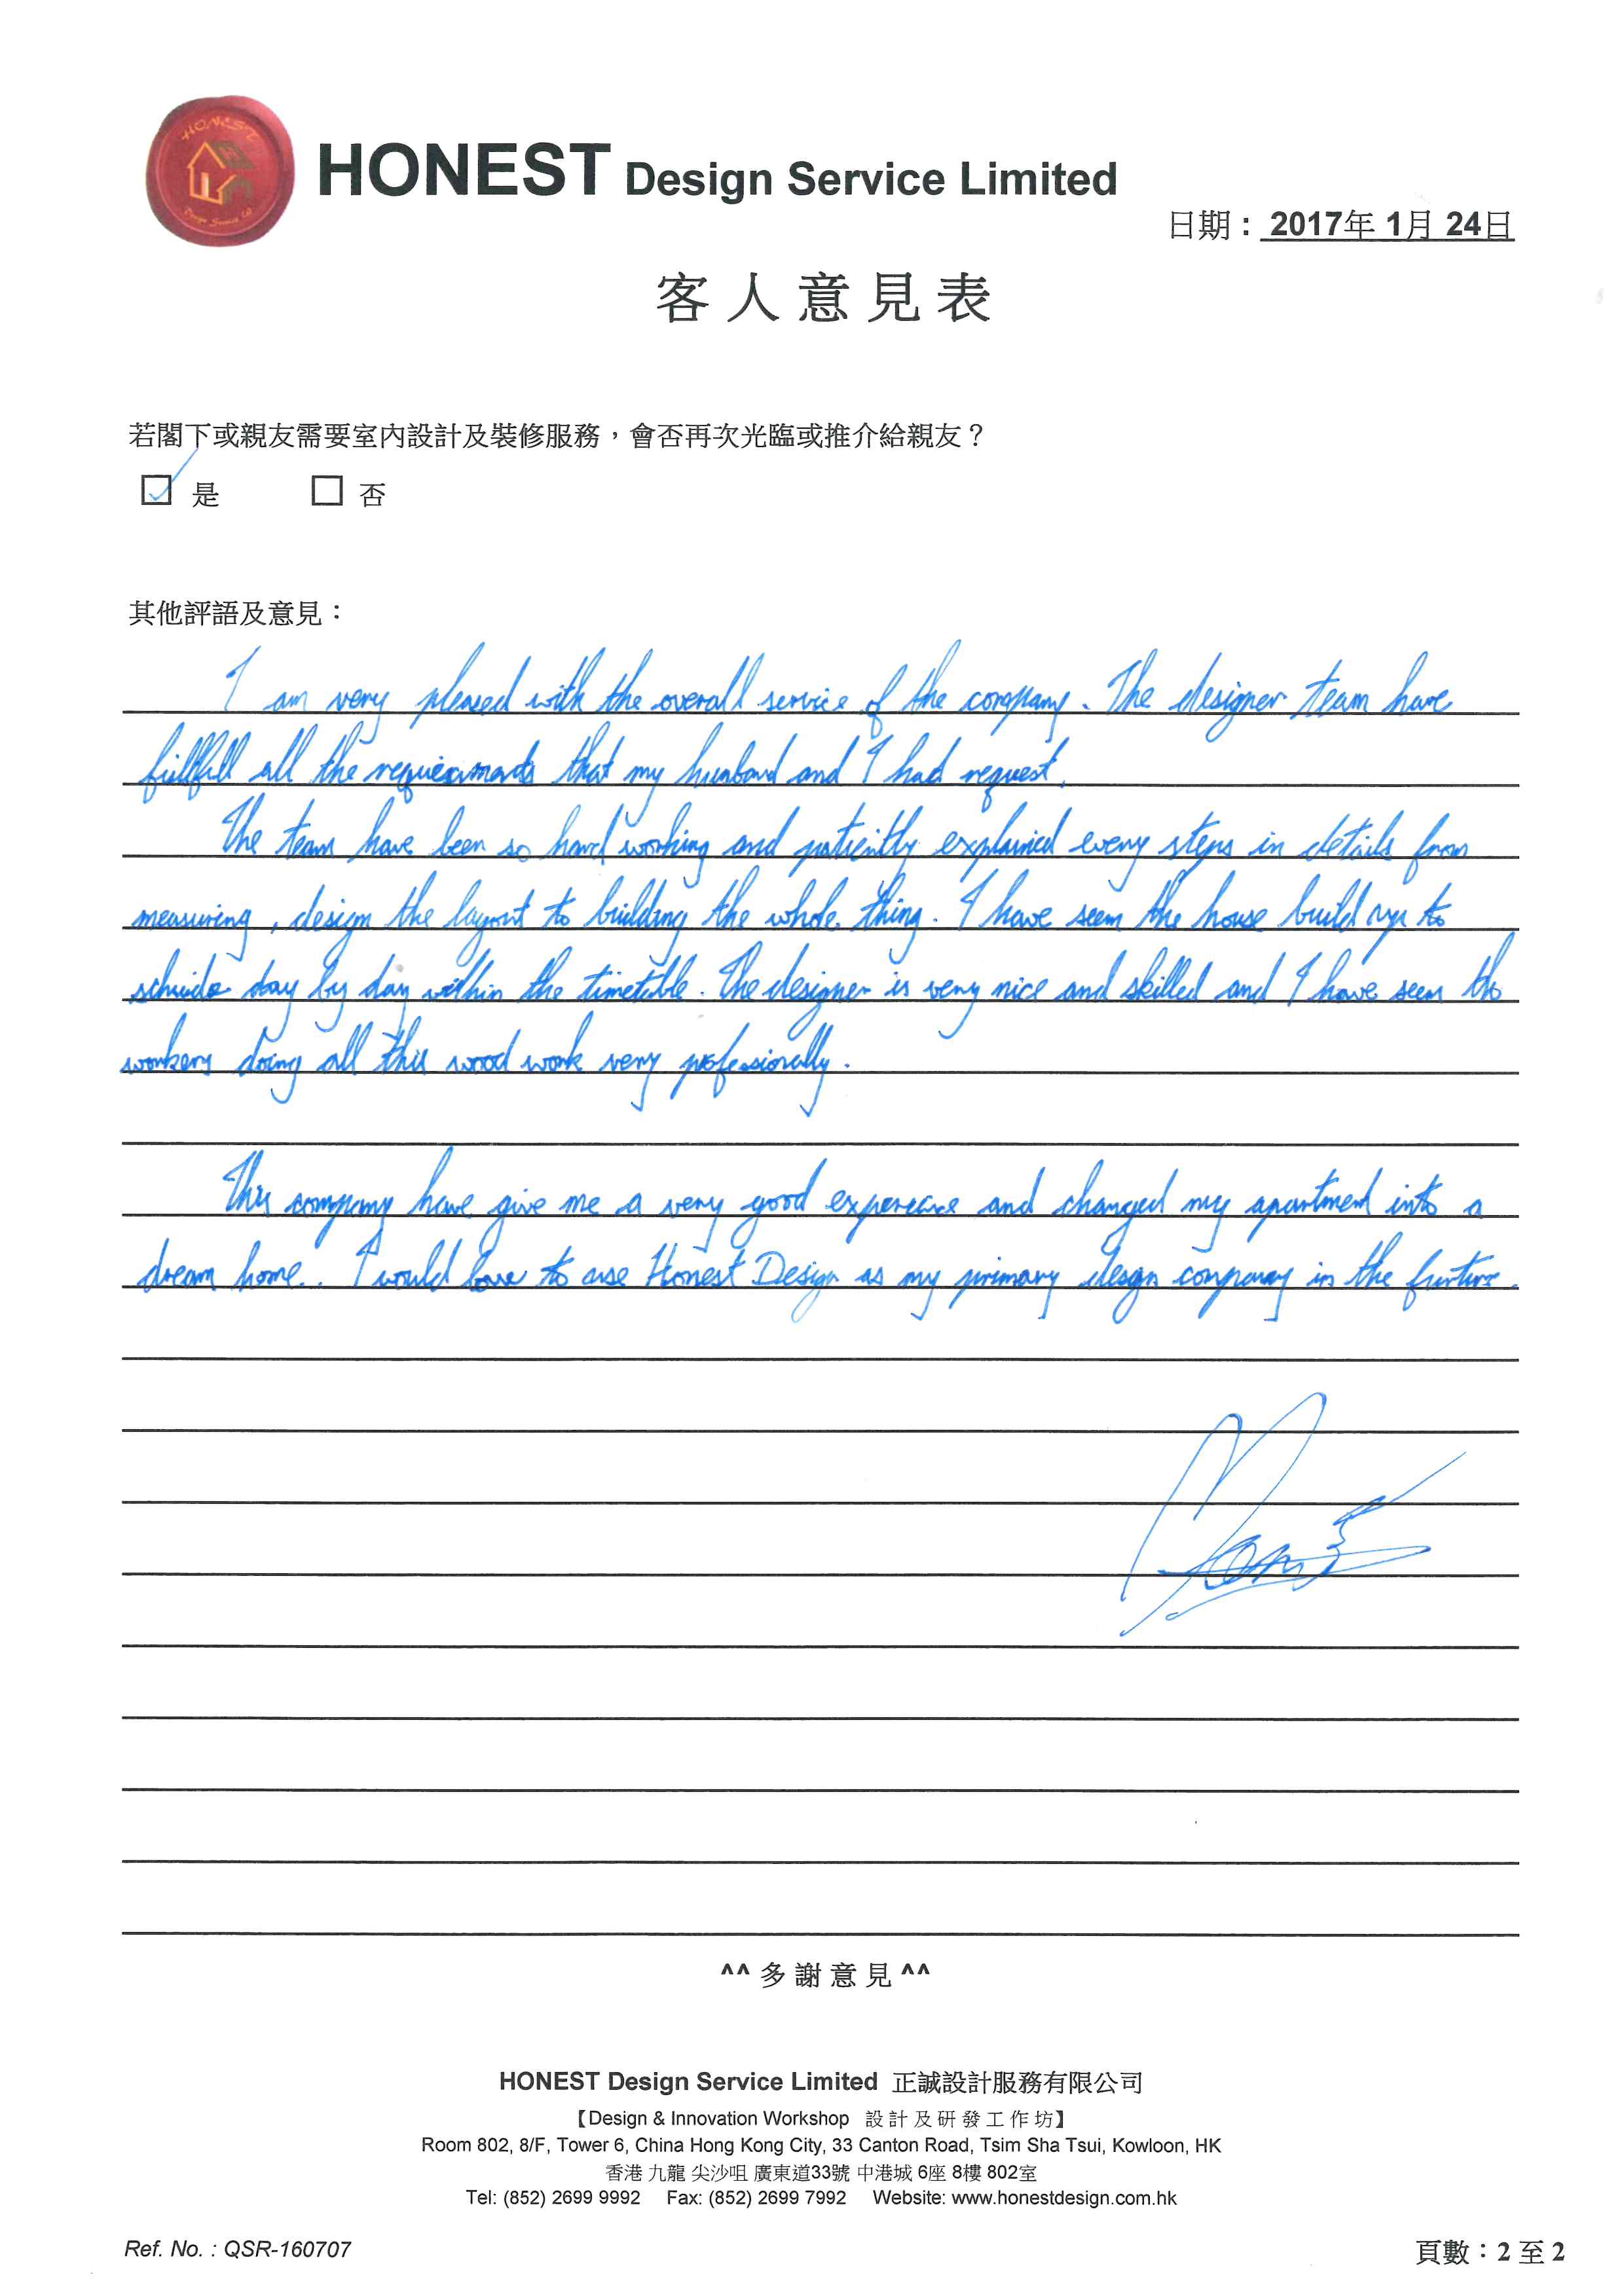 HONEST
Design Service Ltd
HONEST Design Service Limited
日期：2017年 1月 24日
客人意見表
若閣下或親友需要室內設計及裝修服務，會否再次光臨或推介給親友？
是 否
其他評語及意見：
I am very pleased with the overall service of the company. The designer team have
fullfill all the requirements that my husband and I had request.
The team have been so hard working and patiently explained every steps in details from
measuring, design the layout to building the whole thing. I have seem the house build up to
day by day within the timetable. The designer is very nice and skilled and I have seem the
workers doing all this wood work very professionally.
This company have give me a very good experience and changed my apartment into a
dream home.. I would love to use Honest Design as my primary design company in the furture.
^^ 多謝意見 ^^
HONEST Design Service Limited 正誠設計服務有限公司
【Design & Innovation Workshop 設計及研發工作坊】
Room 802, 8/F, Tower 6, China Hong Kong City, 33 Canton Road, Tsim Sha Tsui, Kowloon, HK
香港 九龍 尖沙咀 廣東道33號 中港城 6座 8樓 802室
Tel: (852) 2699 9992 Fax: (852) 2699 7992 Website: www.honestdesign.com.hk
Ref. No. : QSR-160707
頁數：2 至 2